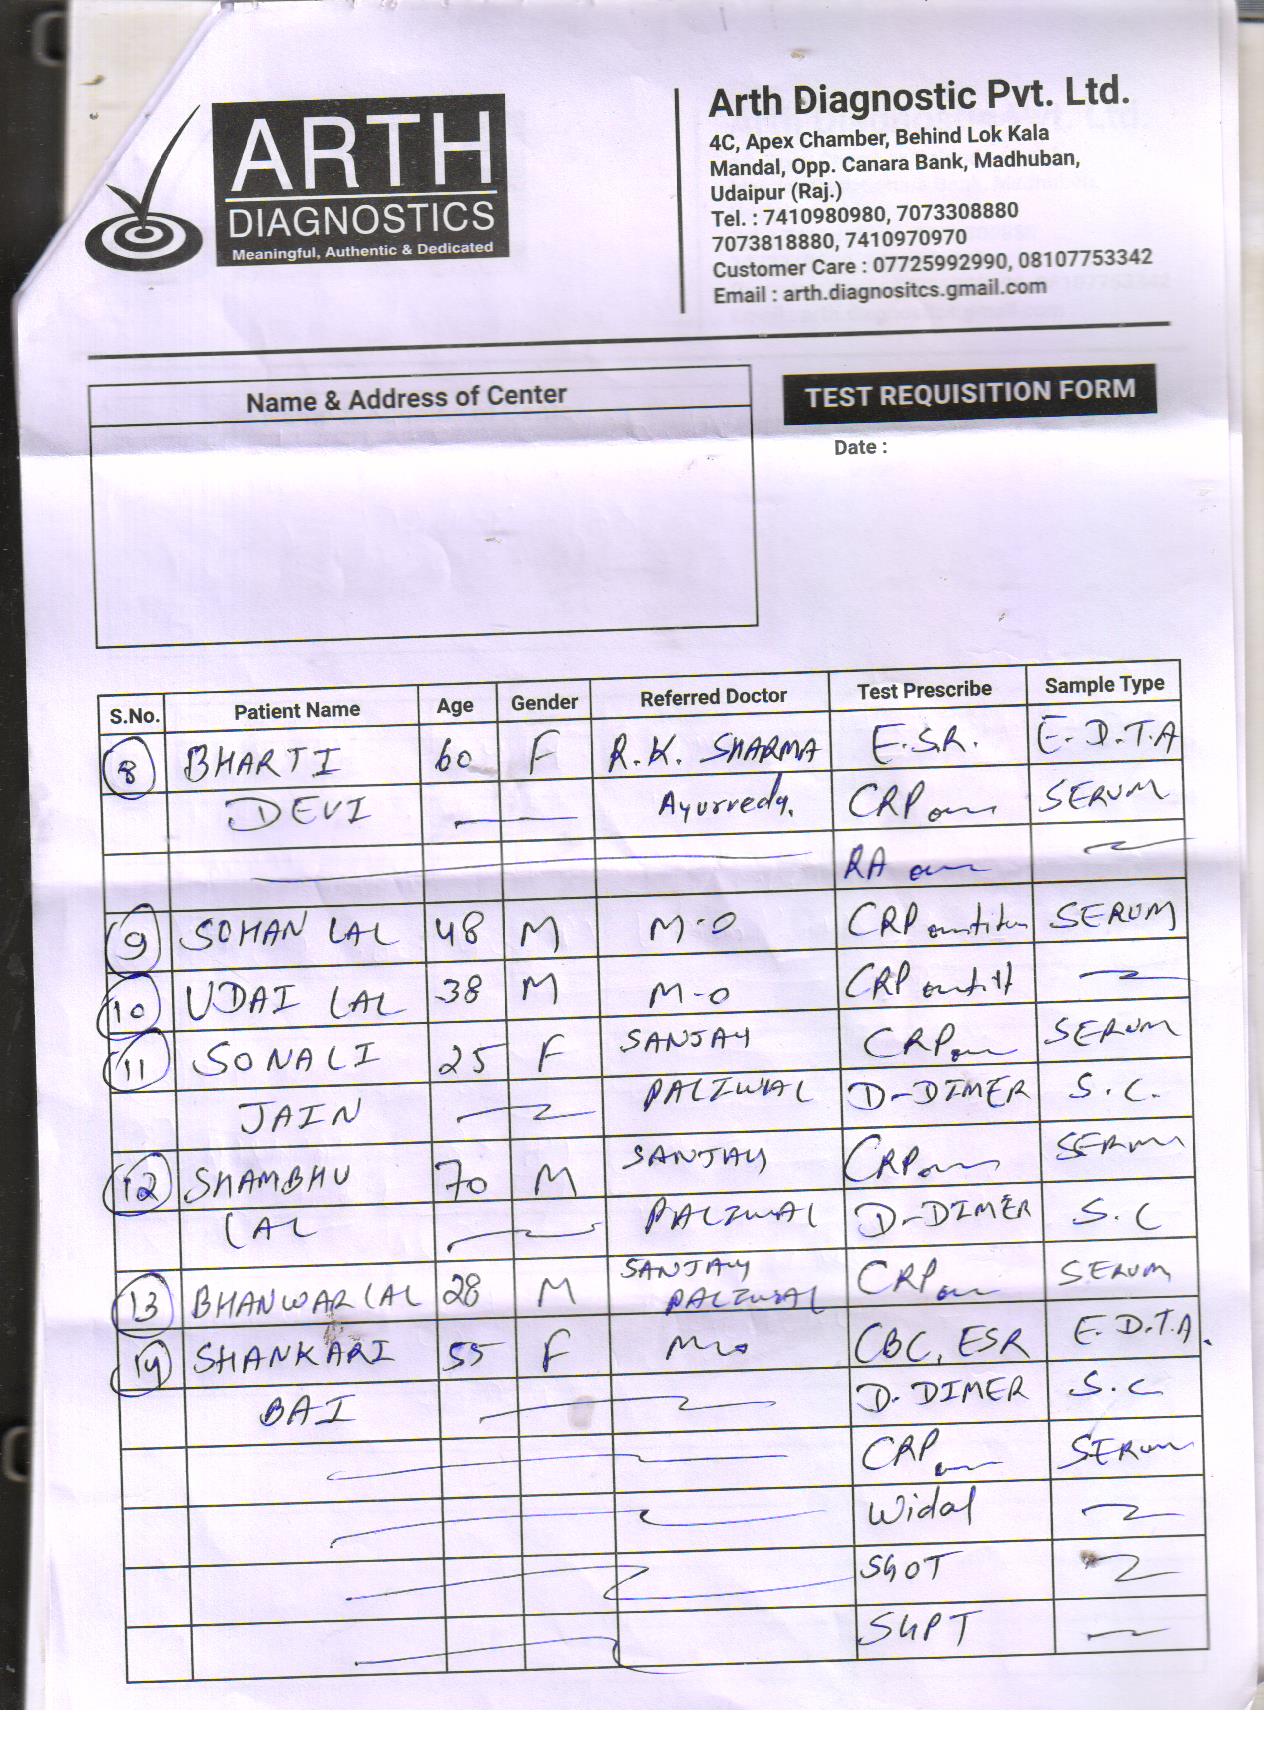 ARTH
DIAGNOSTICS
Meaningful, Authentic & Dedicated
Arth Diagnostic Pvt. Ltd.
4C, Apex Chamber, Behind Lok Kala
Mandal, Opp. Canara Bank, Madhuban,
Udaipur (Raj.)
Tel. : 7410980980, 7073308880
7073818880, 7410970970
Customer Care : 07725992990, 08107753342
Email : arth.diagnositcs.gmail.com
Name & Address of Center
TEST REQUISITION FORM
Date :
S.No. Patient Name Age Gender Referred Doctor Test Prescribe Sample Type
8 BHARTI 60 F R.K. SHARMA E.S.R. E.D.T.A
DEVI Ayurveda. CRP SERUM
RA
9 SOHAN LAL 48 M M-O CRP SERUM
10 UDAI LAL 38 M M-O CRP
11 SONALI 25 F SANJAY CRP SERUM
JAIN PALIWAL D-DIMER S.C.
12 SHAMBHU 70 M SANJAY CRP SERUM
LAL PALIWAL D-DIMER S.C
13 BHANWAR LAL 28 M SANJAY PALIWAL CRP SERUM
14 SHANKARI 55 F M-o CBC, ESR E.D.T.A.
BAI D.DIMER S.C
CRP SERUM
Widal
SGOT
SGPT